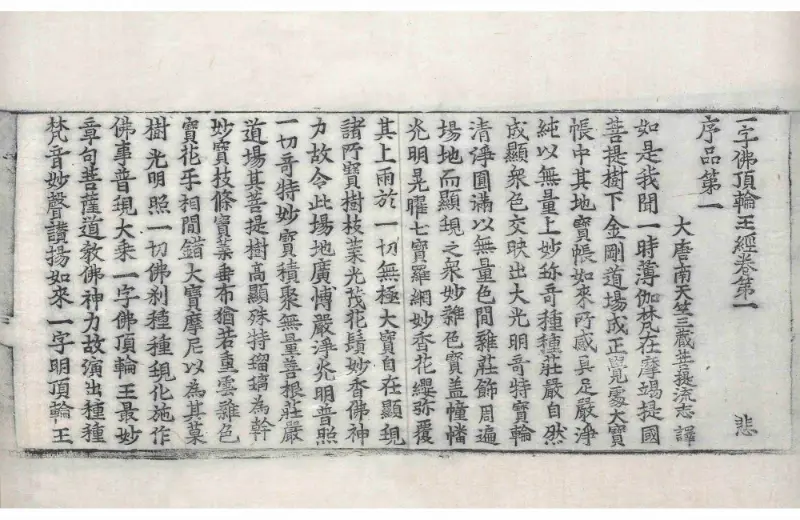 一字佛頂輪王經卷第一 悲
序品第一
大唐南天竺三藏菩提流志 譯
如是我聞一時薄伽梵在摩竭提國
菩提樹下金剛道場成正覺處大寶
帳中其地寶帳如來所感具足嚴淨
純以無量上妙珎奇種種莊嚴自然
成顯衆色交映出大光明奇特寶輪
清淨圓滿以無量色間雜莊飾周遍
場地而顯現之衆妙雜色寶盖幢幡
光明晃曜七寶羅網妙香花纓弥覆
其上雨於一切無極大寶自在顯現
諸所寶樹枝葉光茂花鬚妙香佛神
力故令此場地廣博嚴淨光明普照
一切奇特妙寶積聚無量善根莊嚴
道場其菩提樹高顯殊特瑠璃為幹
妙寶枝條寶葉垂布猶若重雲雜色
寶花互相間錯大寶摩尼以為其菓
樹光明照一切佛刹種種現化施作
佛事普現大乘一字佛頂輪王最妙
章句菩薩道教佛神力故演出種種
梵音妙聲讃揚如來一字明頂輪王